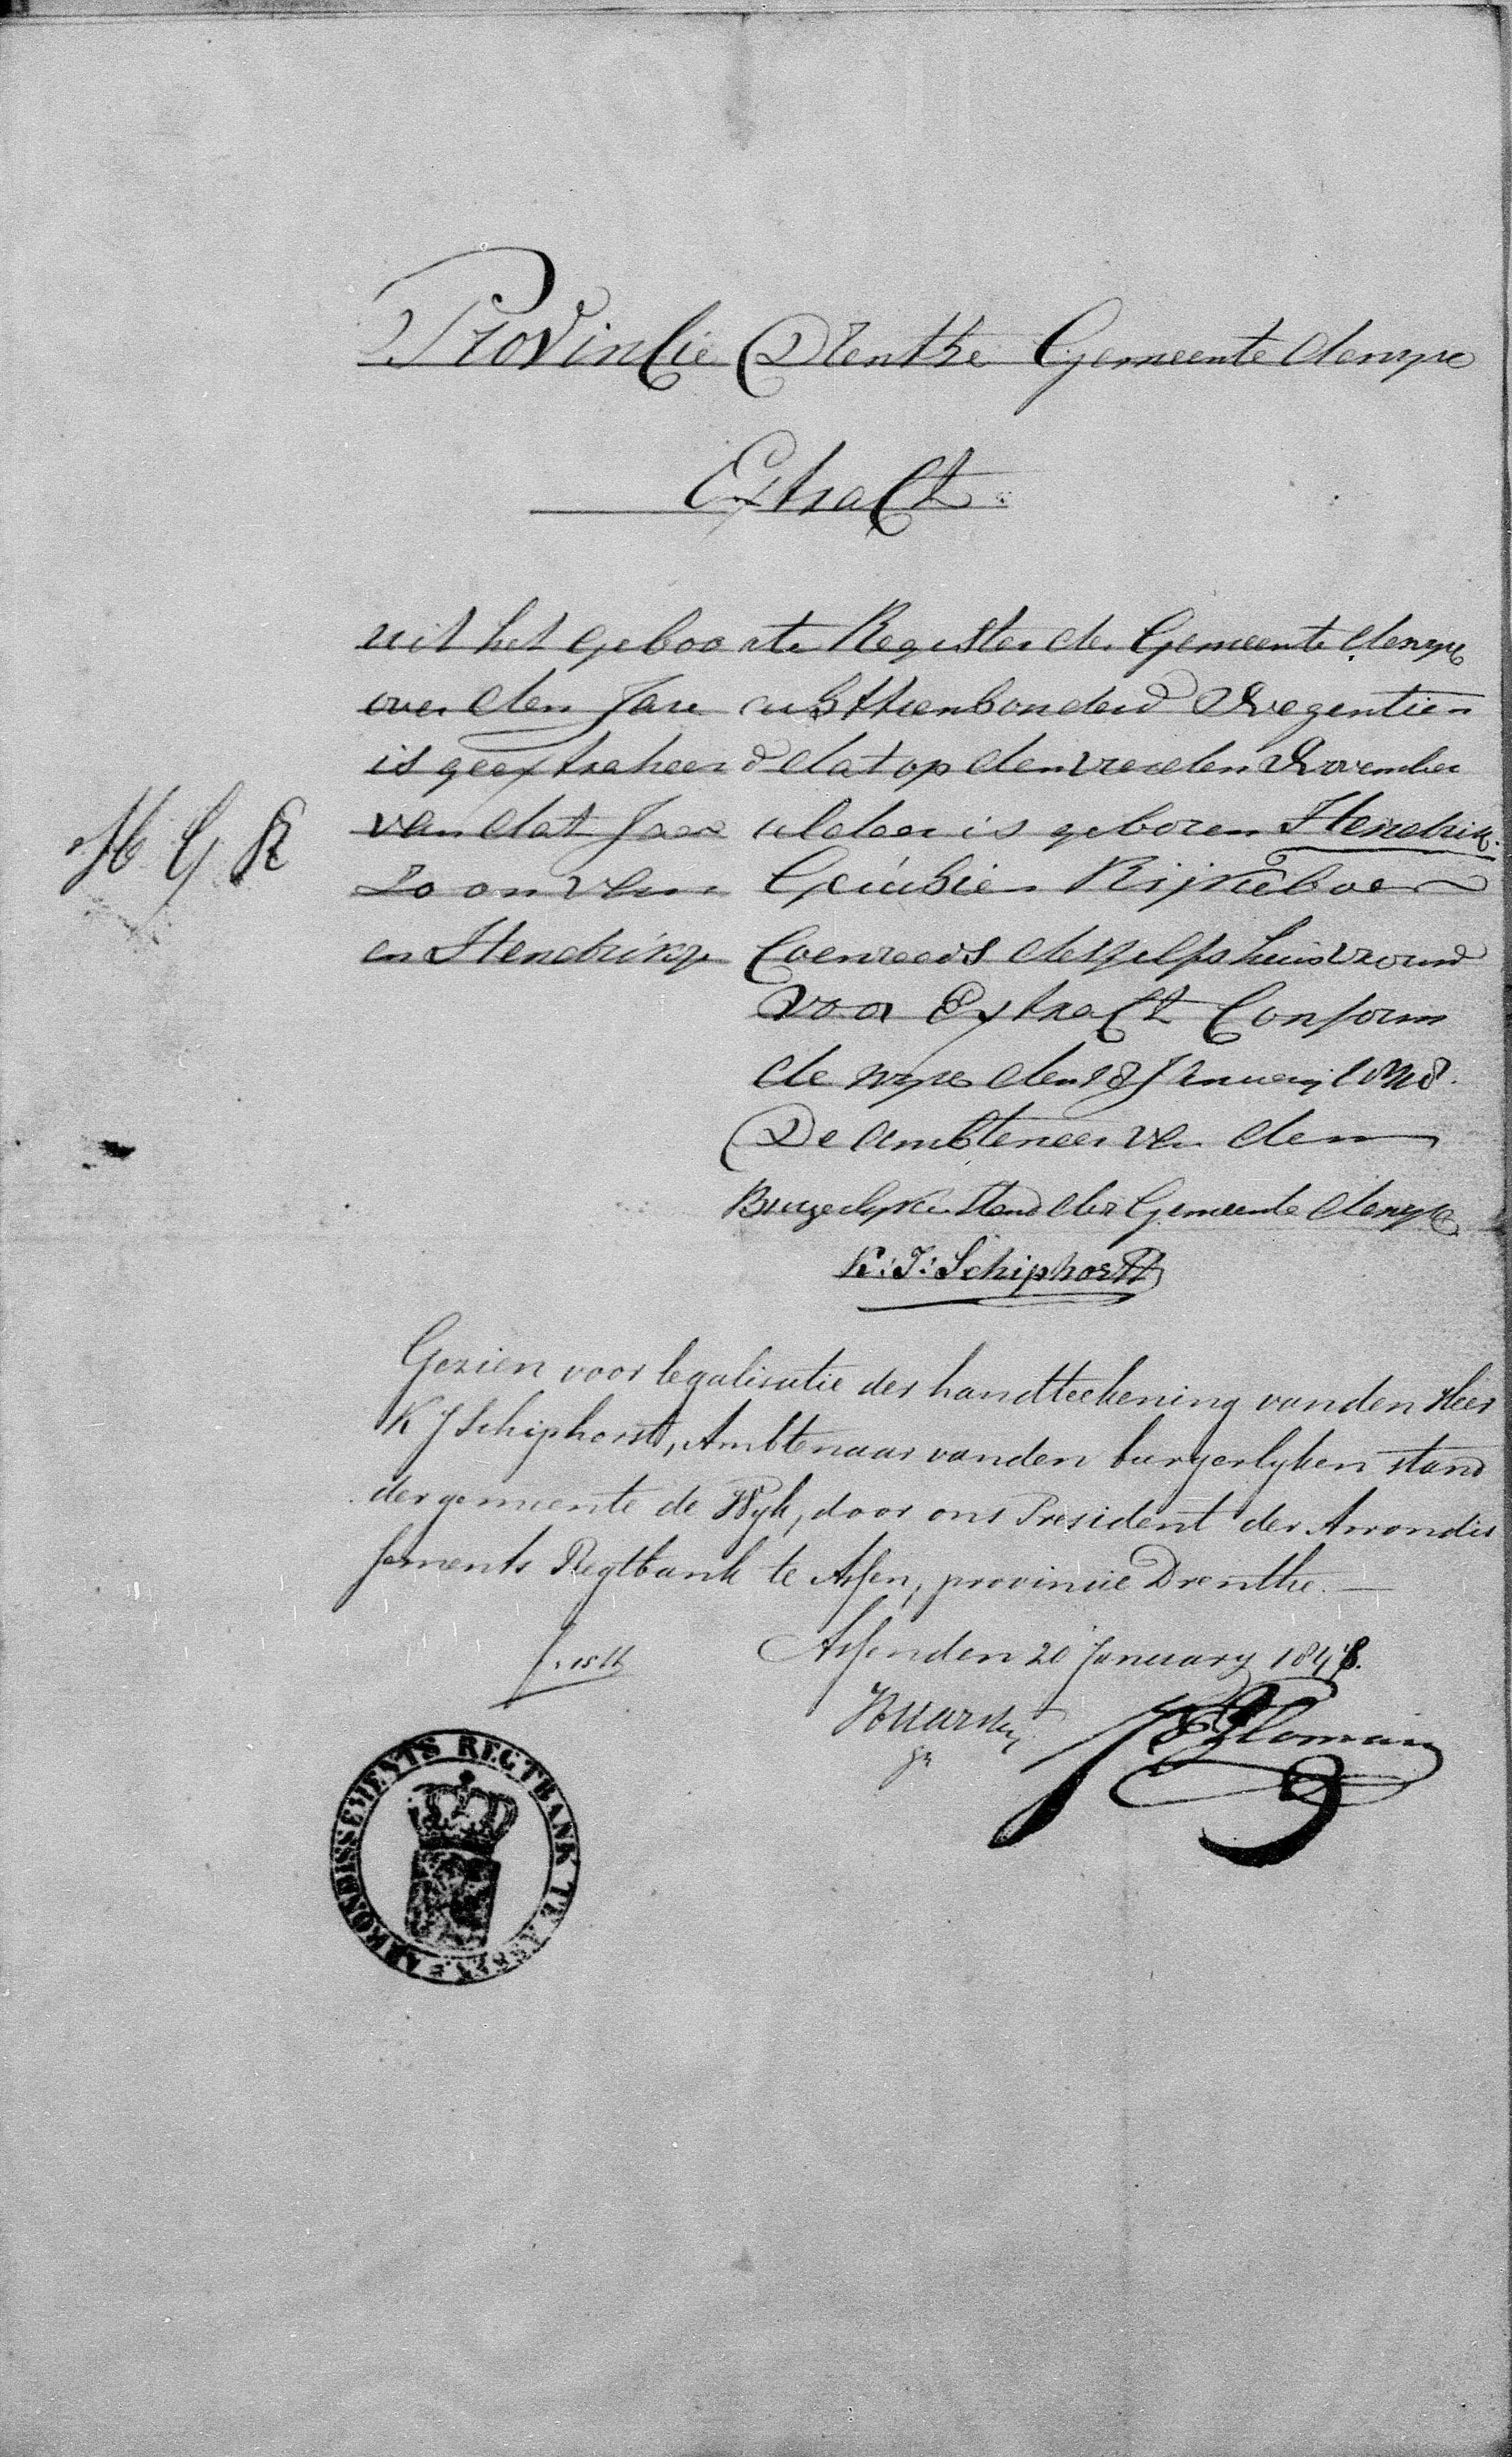 Provincie Drenthe Gemeente dewyk
Extract
uit het geboorte Register der Gemeente dewyk
over den Jare achttienhonderd Negentien
is geextraheerd dat op den vierden November
van dat Jaar aldaar is geboren Hendrik
M G R
Zoon van Geuchien Rijkeboer
en Hendrikje Coenraads deszelfs huisvrouw
voor Extract Conform
de wyk den 18 January 1848.
De ambtenaar van den
Burgerlyke Stand der Gemeente dewyk
K: J: Schiphorst
Gezien voor legalisatie der handteekening van den Heer
K J Schiphorst, Ambtenaar van den burgerlyken stand
der gemeente de Wyk, door ons President der Arrondis
sements Regtbank te Assen, provincie Drenthe. —
Assen den 20 January 1848.
ARRONDISSEMENTS REGTBANK TE ASSEN